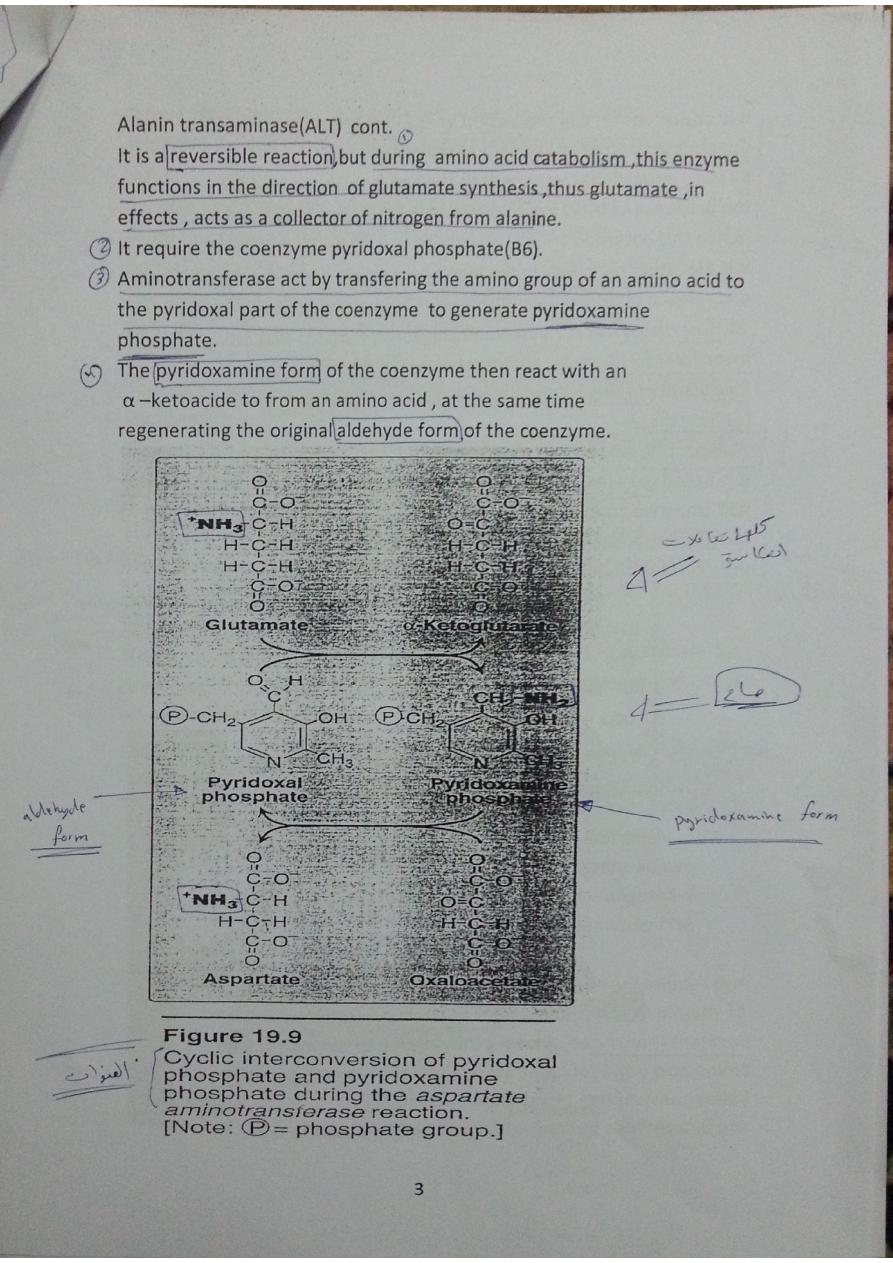 Alanin transaminase(ALT) cont.
①
It is a reversible reaction,but during amino acid catabolism ,this enzyme
functions in the direction of glutamate synthesis ,thus glutamate ,in
effects , acts as a collector of nitrogen from alanine.
② It require the coenzyme pyridoxal phosphate(B6).
③ Aminotransferase act by transfering the amino group of an amino acid to
the pyridoxal part of the coenzyme to generate pyridoxamine
phosphate.
The pyridoxamine form of the coenzyme then react with an
α –ketoacide to from an amino acid , at the same time
regenerating the original aldehyde form of the coenzyme.
O O
C-O⁻ C-O⁻
⁺NH₃-C-H O=C
H-C-H H-C-H
H-C-H H-C-H
C-O⁻ C-O⁻
O O
Glutamate α-Ketoglutarate
كلها تفاعلات
انعكاسية
O H
C CH₂-NH₂
P-CH₂ OH P-CH₂ OH
N CH₃ N CH₃
هام
Pyridoxal Pyridoxamine
phosphate phosphate
aldehyde
form
pyridoxamine form
O O
C-O⁻ C-O⁻
⁺NH₃-C-H O=C
H-C-H H-C-H
C-O⁻ C-O⁻
O O
Aspartate Oxaloacetate
Figure 19.9
العنوان
Cyclic interconversion of pyridoxal
phosphate and pyridoxamine
phosphate during the aspartate
aminotransferase reaction.
[Note: P = phosphate group.]
3